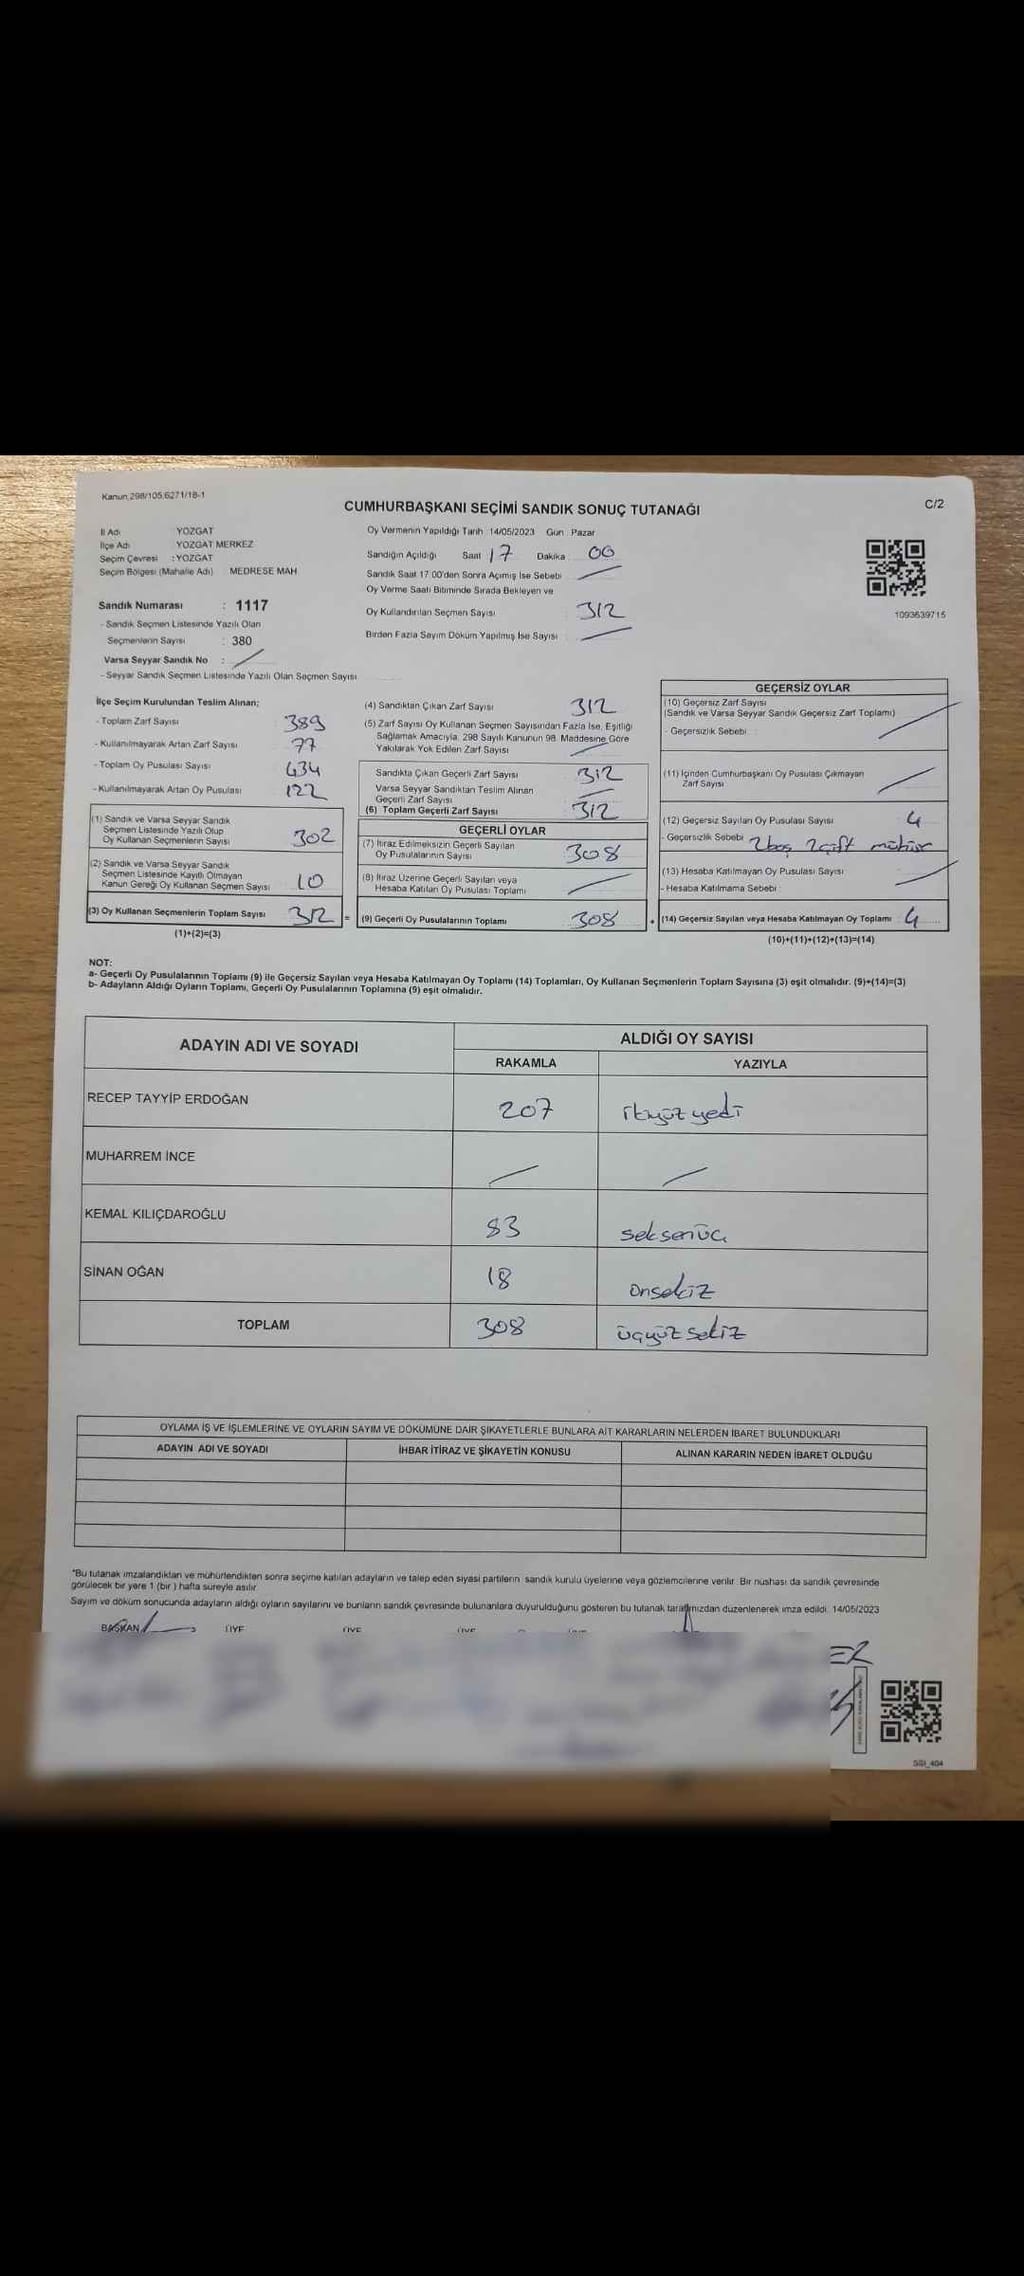 Kanun 298/105,6271/18-1
CUMHURBAŞKANI SEÇİMİ SANDIK SONUÇ TUTANAĞI
C/2
İl Adı YOZGAT
İlçe Adı YOZGAT MERKEZ
Seçim Çevresi : YOZGAT
Seçim Bölgesi (Mahalle Adı) MEDRESE MAH
Sandık Numarası : 1117
- Sandık Seçmen Listesinde Yazılı Olan
Seçmenlerin Sayısı : 380
Varsa Seyyar Sandık No :
- Seyyar Sandık Seçmen Listesinde Yazılı Olan Seçmen Sayısı
Oy Vermenin Yapıldığı Tarih 14/05/2023 Gün Pazar
Sandığın Açıldığı Saat 17 Dakika 00
Sandık Saat 17 00'den Sonra Açımış İse Sebebi
Oy Verme Saati Bitiminde Sırada Bekleyen ve
Oy Kullandırılan Seçmen Sayısı : 312
Birden Fazla Sayım Döküm Yapılmış İse Sayısı
1093639715
İlçe Seçim Kurulundan Teslim Alınan;
- Toplam Zarf Sayısı 389
- Kullanılmayarak Artan Zarf Sayısı 77
- Toplam Oy Pusulası Sayısı 434
- Kullanılmayarak Artan Oy Pusulası 122
(1) Sandık ve Varsa Seyyar Sandık
Seçmen Listesinde Yazılı Olup
Oy Kullanan Seçmenlerin Sayısı 302
(2) Sandık ve Varsa Seyyar Sandık
Seçmen Listesinde Kayıtlı Olmayan
Kanun Gereği Oy Kullanan Seçmen Sayısı 10
(3) Oy Kullanan Seçmenlerin Toplam Sayısı 312 =
(1)+(2)=(3)
(4) Sandıktan Çıkan Zarf Sayısı 312
(5) Zarf Sayısı Oy Kullanan Seçmen Sayısından Fazla İse, Eşitliği
Sağlamak Amacıyla, 298 Sayılı Kanunun 98. Maddesine Göre
Yakılarak Yok Edilen Zarf Sayısı
Sandıkta Çıkan Geçerli Zarf Sayısı 312
Varsa Seyyar Sandıktan Teslim Alınan
Geçerli Zarf Sayısı
(6) Toplam Geçerli Zarf Sayısı 312
GEÇERLİ OYLAR
(7) İtiraz Edilmeksizin Geçerli Sayılan
Oy Pusulalarının Sayısı 308
(8) İtiraz Üzerine Geçerli Sayılan veya
Hesaba Katılan Oy Pusulası Toplamı
(9) Geçerli Oy Pusulalarının Toplamı 308 +
GEÇERSİZ OYLAR
(10) Geçersiz Zarf Sayısı
(Sandık ve Varsa Seyyar Sandık Geçersiz Zarf Toplamı)
- Geçersizlik Sebebi :
(11) İçinden Cumhurbaşkanı Oy Pusulası Çıkmayan
Zarf Sayısı
(12) Geçersiz Sayılan Oy Pusulası Sayısı 4
- Geçersizlik Sebebi 2 boş 2 çift mühür
(13) Hesaba Katılmayan Oy Pusulası Sayısı
- Hesaba Katılmama Sebebi :
(14) Geçersiz Sayılan veya Hesaba Katılmayan Oy Toplamı 4
(10)+(11)+(12)+(13)=(14)
NOT:
a- Geçerli Oy Pusulalarının Toplamı (9) ile Geçersiz Sayılan veya Hesaba Katılmayan Oy Toplamı (14) Toplamları, Oy Kullanan Seçmenlerin Toplam Sayısına (3) eşit olmalıdır. (9)+(14)=(3)
b- Adayların Aldığı Oyların Toplamı, Geçerli Oy Pusulalarının Toplamına (9) eşit olmalıdır.
ADAYIN ADI VE SOYADI
ALDIĞI OY SAYISI
RAKAMLA YAZIYLA
RECEP TAYYİP ERDOĞAN 207 ikiyüz yedi
MUHARREM İNCE
KEMAL KILIÇDAROĞLU 83 seksenüç
SİNAN OĞAN 18 onsekiz
TOPLAM 308 üçyüz sekiz
OYLAMA İŞ VE İŞLEMLERİNE VE OYLARIN SAYIM VE DÖKÜMÜNE DAİR ŞİKAYETLERLE BUNLARA AİT KARARLARIN NELERDEN İBARET BULUNDUKLARI
ADAYIN ADI VE SOYADI İHBAR İTİRAZ VE ŞİKAYETİN KONUSU ALINAN KARARIN NEDEN İBARET OLDUĞU
*Bu tutanak imzalandıktan ve mühürlendikten sonra seçime katılan adayların ve talep eden siyasi partilerin sandık kurulu üyelerine veya gözlemcilerine verilir. Bir nüshası da sandık çevresinde
görülecek bir yere 1 (bir ) hafta süreyle asılır.
Sayım ve döküm sonucunda adayların aldığı oyların sayılarını ve bunların sandık çevresinde bulunanlara duyurulduğunu gösteren bu tutanak tarafımızdan düzenlenerek imza edildi. 14/05/2023
BAŞKAN ÜYE ÜYE ÜYE
SSI_404